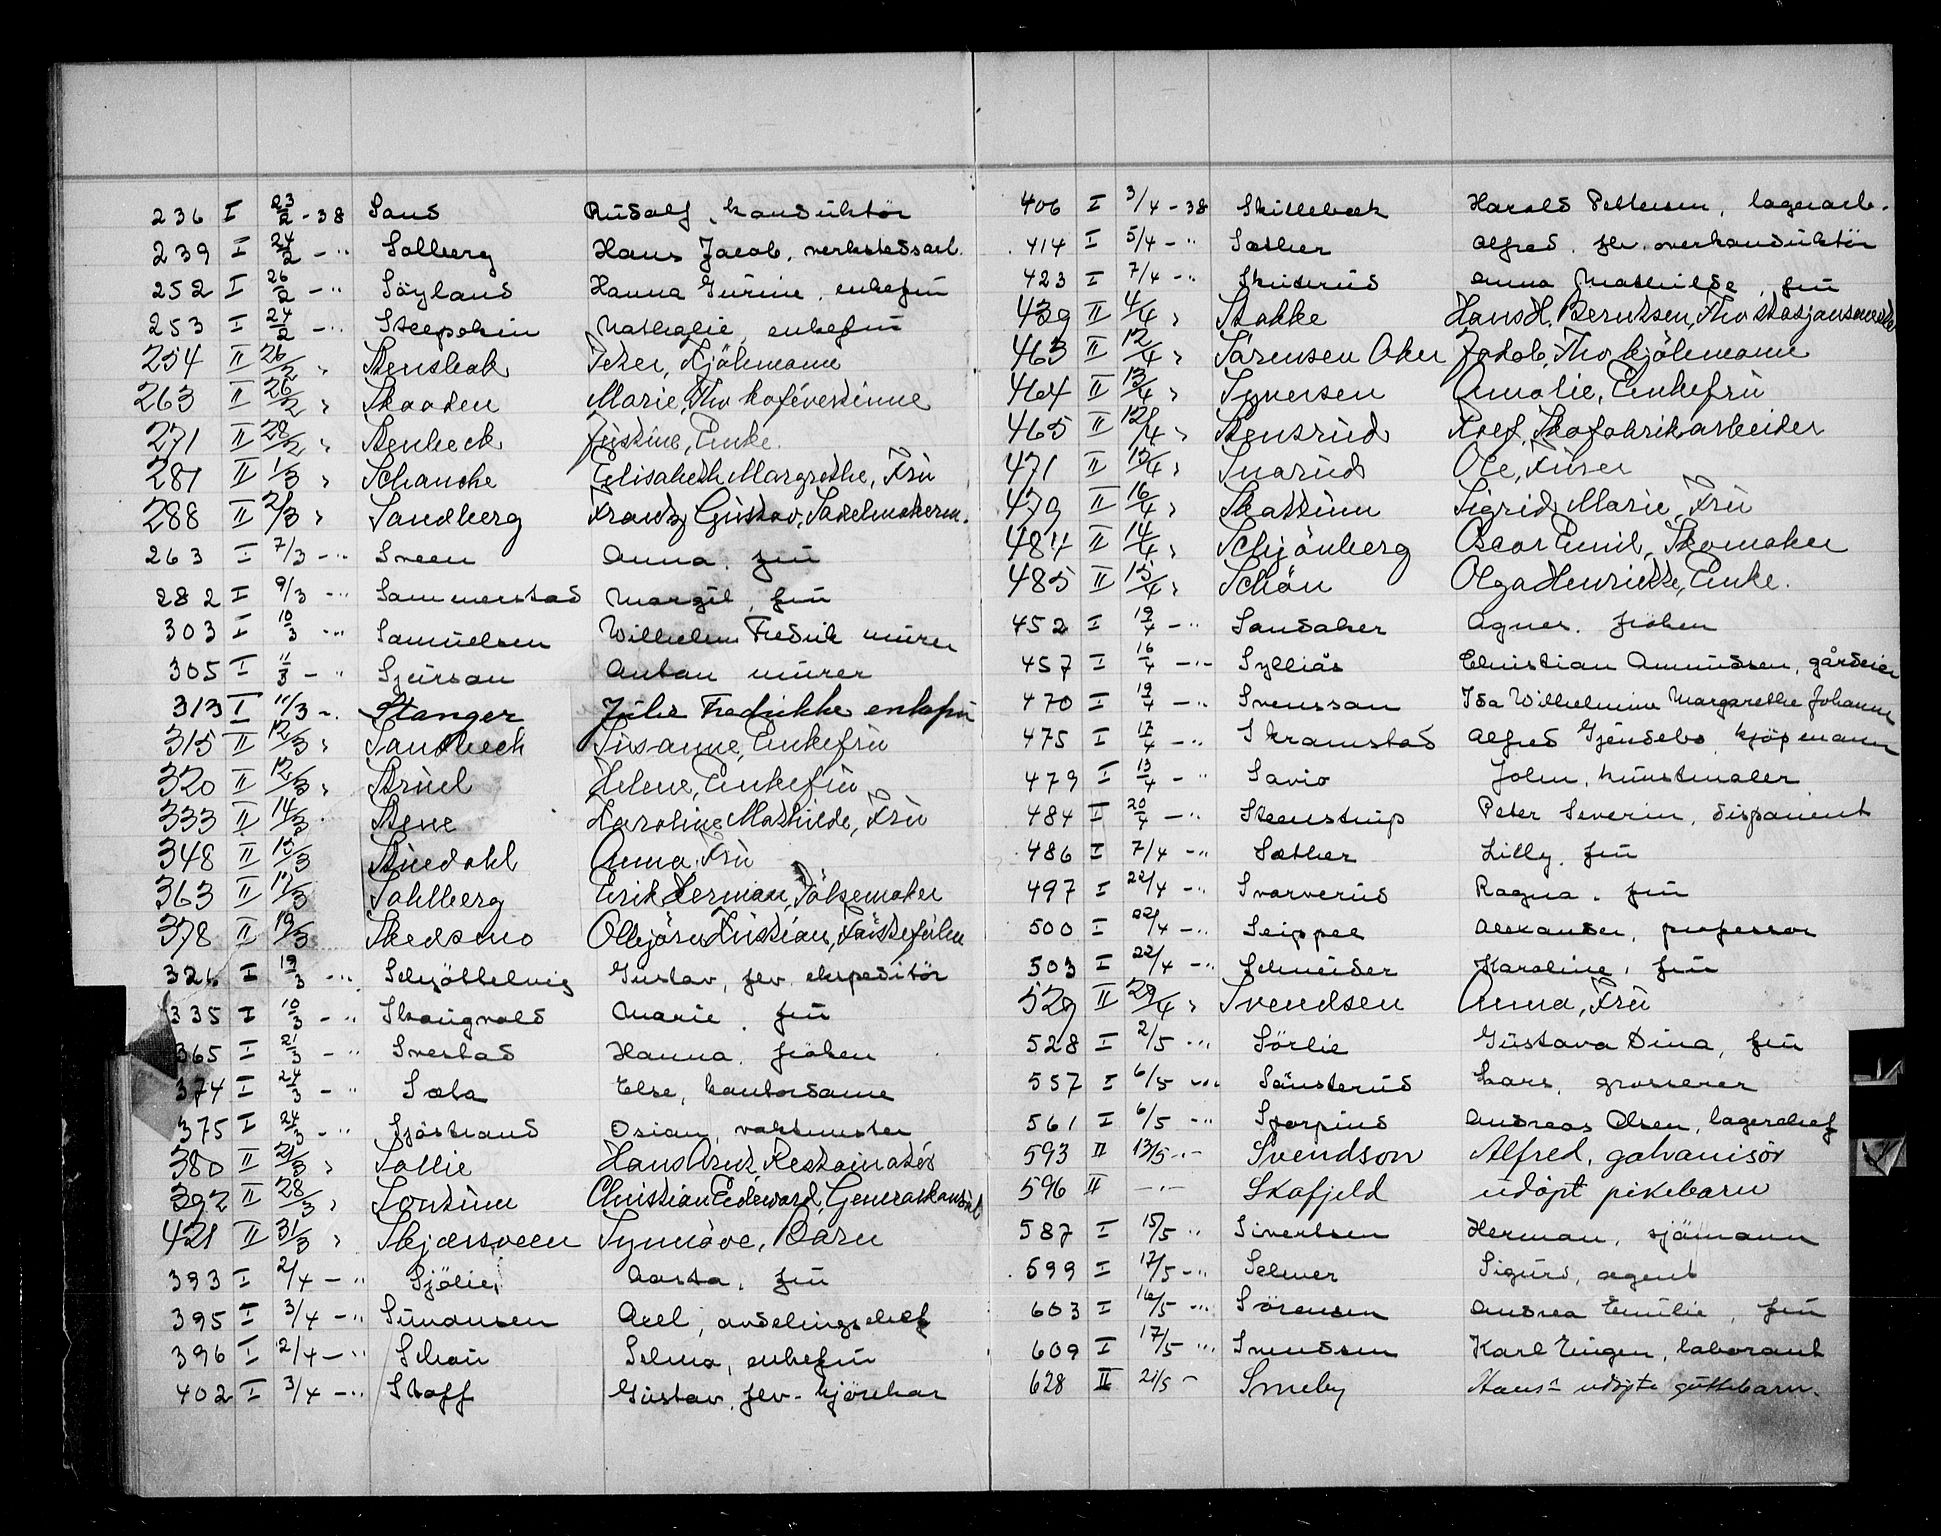 236 I 23/2 - 38 Sand Rudolf, konduktör
239 I 24/2 - " Solberg Hans Jacob, verkstedsarb.
252 I 26/2 - " Söyland Hanna Gurine, enkefru
253 I 24/2 - " Nathalie, enkefru
254 II 26/2 " Stensbak Peter, Kjöbmann
263 II 26/2 " Skaaden Marie, Fhv kaféverdinne
271 II 28/2 " Stenbeck Justine, Enke.
287 II 1/3 " Schanche Elisabeth Margrethe, Frü
288 II 2/3 " Sandberg Frantz Gustav, Sadelmakerm.
263 I 7/3 - " Sveen Anna, fru
282 I 9/3 - " Sammerstad Margit, fru
303 I 10/3 - " Samuelsen Wilhelm Fredrik murer
305 I 11/3 - " Sjursen Anton murer
313 I 11/3 - " Stanger Julie Fredrikke enkefru
315 II 12/3 " Sandbech Susanne, Enkefrü
320 II 12/3 " Strüel Helene, Enkefrü
333 II 14/3 " Stene Karoline Mathilde, Frü
348 II 15/3 Anna, Frü
363 II 17/3 Sahlberg Erik Herman, Pölsemaker
378 II 19/3 Skedsmo Olbjörn Kristian,
326 I 19/3 - " Schjöttelvig Gustav, fhv. ekspeditör
335 I 10/3 - " Skaugvold Marie, fru
365 I 21/3 - " Svestad Hanna, fröken
374 I 24/3 - " Sæla Else, kontordame
375 I 24/3 - " Sjöstrand Osian, vaktmester
380 II 21/3 " Sollie Hans Arnt, Restauratör
392 II 28/3 " Sontum Christian Edeward, Generalkonsul
421 II 31/3 " Skjærsveen Synnöve, Barn
393 I 2/4 - " Sjölie Aasta, fru
395 I 3/4 - " Simonsen Axel, avdelingschef
396 I 2/4 - " Schou Selma, enkefru
402 I 3/4 - " Skoff Gustav, fhv. kjörekar
406 I 3/4 - 38 Skillebæk Harald Pettersen, lagerarb.
414 I 5/4 - " Sæther Alfred, fhv. overkonduktör
423 I 7/4 - " Skuterud Anna Mathilde, fru
439 II 4/4 " Stokke Hans H. Berntsen, Fhv stasjonsmester
463 II 12/4 " Sörensen Aker Jakob, Fhv kjöbmann
464 II 13/4 " Syversen Amalie, Enkefrü
465 II 12/4 " Stensrüd Rolf, Skofabrikarbeider
471 II 13/4 " Snarüd Ole, Fürer
479 II 16/4 " Skattum Sigrid Marie, Frü
484 II 14/4 " Schjönberg Oscar Emil, Skomaker
485 II 15/4 " Schön Olga Henriette, Enke.
452 I 19/4 - " Sandaker Agnes, fröken
457 I 16/4 - " Sylliås Christian Amundsen, gårdeier
470 I 19/4 - " Svensson Ida Wilhelmine Margarethe Johanne
475 I 17/4 - " Skramstad Alfred Gjendebo kjöpmann
479 I 13/4 - " Savio John, kunstmaler
484 I 20/4 - " Steenstrup Peter Severin, disponent
486 I 7/4 - " Sæther Lilly, fru
497 I 22/4 - " Svarverud Ragna, fru
500 I 22/4 - " Seippel Alexander, professor
503 I 22/4 - " Schneider Karoline, fru
529 II 29/4 " Svendsen Anna, Frü
528 I 2/5 - " Sörlie Gustava Dina, fru
557 I 6/5 - " Sönsterud Lars, grosserer
561 I 6/5 - " Storpiud Andreas Olsen, lagerchef
593 II 13/5 - " Svendson Alfred, galvanisör
596 II - " - Skafjeld udöpt pikebarn
587 I 15/5 " Sivertsen Herman, sjömann
599 I 17/5 - " Selmer Sigurd, agent
603 I 16/5 - " Sörensen Andrea Emilie, fru
609 I 17/5 - " Svendsen Karl Eugen, laborant
628 II 21/5 - Smeby Hans udöpte guttebarn.